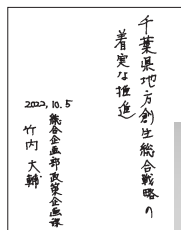 千葉県地方創生総合戦略の
着実な推進
2022.10.5
総合企画部政策企画課
竹内 大輔